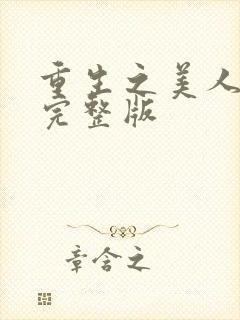 重生之美人
完整版
章含之